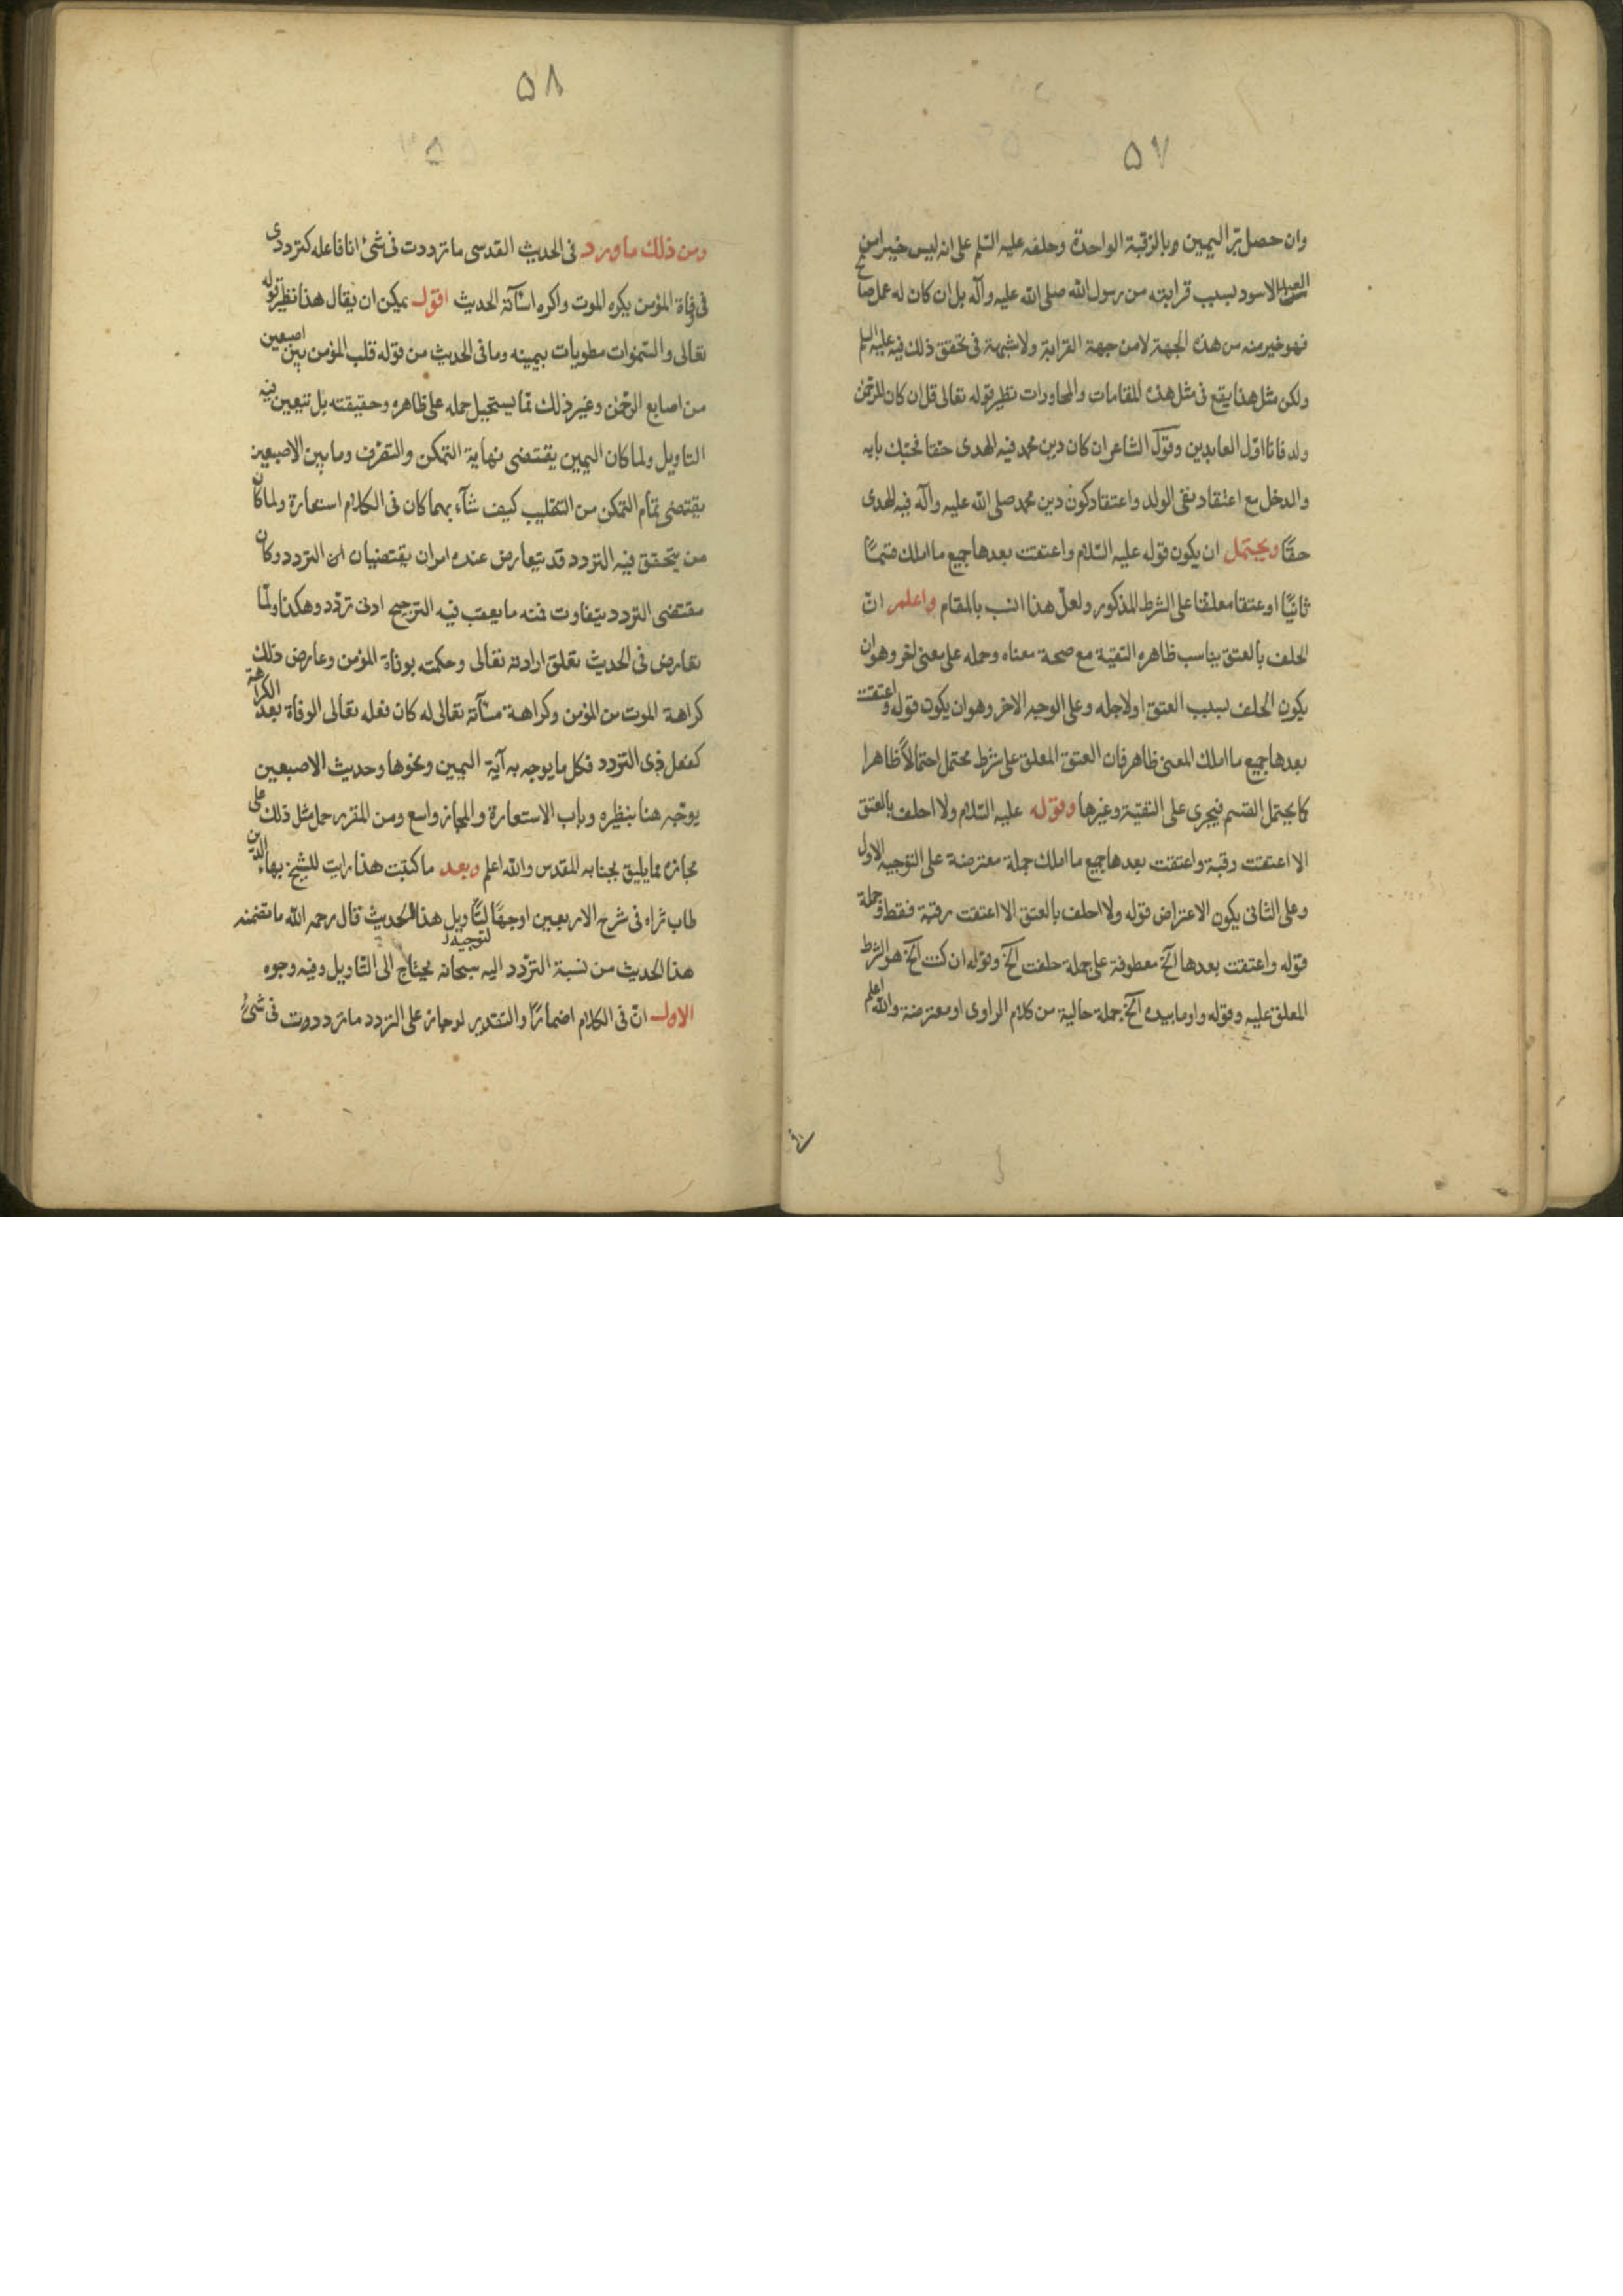 ٥٧
وان حصل برّ اليمين وبالرقبة الواحدة وحلفه عليه السّلم على انه ليس خيرا من
العبد الاسود بسبب قرابته من رسول الله صلى الله عليه وآله بل ان كان له عمل صالح
فهو خير منه من هذه الجهة لا من جهة القرابة ولا شبهة فى تحقق ذلك فيه عليه السلم
ولكن مثل هذا يقع فى مثل هذه المقامات والمحاورات نظير قوله تعالى قل ان كان للرحمن
ولد فانا اوّل العابدين وقول الشاعر ان كان دين محمد فيه الهدى حقا فحبّك بابه
والدخل مع اعتقاد نفى الولد واعتقاد كون دين محمد صلى الله عليه وآله فيه الهدى
حقّا ويحتمل ان يكون قوله عليه السّلام واعتقت بعدها جميع ما املك قسمًا
ثانيًا او عتقا معلقا على الشرط المذكور ولعلّ هذا انسب بالمقام واعلم انّ
الحلف بالعتق يناسب ظاهره التقية مع صحة معناه وحمله على معنى اخر وهو ان
يكون الحلف بسبب العتق اولاجله وعلى الوجه الاخر وهو ان يكون قوله واعتقت
بعدها جميع ما املك المعنى ظاهر فان العتق المعلق على شرط محتمل احتمالاً ظاهرا
كما يحتمل القسم فيجرى على التقيّة وغيرها وقوله عليه السّلام ولا احلف بالعتق
الا اعتقت رقبة واعتقت بعدها جميع ما املك جملة معترضة على التوجيه الاول
وعلى الثانى يكون الاعتراض قوله ولا احلف بالعتق الا اعتقت رقبة فقط وجملة
قوله واعتقت بعدها الخ معطوفة على جملة حلفت الخ وقوله ان كنت الخ هو الشرط
المعلق عليه وقوله واوما بيده الخ جملة حالية من كلام الراوى او معترضة والله اعلم
٥٨
ومن ذلك ما ورد فى الحديث القدسى ما ترددت فى شئ انا فاعله كترددى
فى وفاة المؤمن يكره الموت واكره اسآئة الحديث اقول يمكن ان يقال هذا نظير قوله
تعالى والسّموات مطويات بيمينه وما فى الحديث من قوله قلب المؤمن بين اصبعين
من اصابع الرحمن وغير ذلك ممّا يستحيل حمله على ظاهره وحقيقته بل تتعين فيه
التاويل ولما كان اليمين يقتضى نهاية التمكن والتصرّف وما بين الاصبعين
يقتضى تمام التمكن من التقليب كيف شآء بهما كان فى الكلام استعارة ولما كان
من يتحقق فيه التردد قد يتعارض عنده امران يقتضيان التردد وكان
مقتضى التردد يتفاوت فمنه ما يعقب فيه الترجيح ادنى تردّد وهكذا ولمّا
تعارض فى الحديث تعلق ارادته تعالى وحكمته بوفاة المؤمن وعارض ذلك
كراهة الموت من المؤمن وكراهة مسآئته تعالى له كان فعله تعالى الوفاة بعد الكراهة
كفعل ذى التردد فكل ما يوجه به آية اليمين ونحوها وحديث الاصبعين
يوجّه هنا بنظيره وباب الاستعارة والمجاز واسع ومن المقرر حمل مثل ذلك على
مجازه مما يليق بجنابه المقدس والله اعلم وبعد ما كتبت هذا رايت للشيخ بهاء الدين
طاب ثراه فى شرح الاربعين اوجهًا لتاويل هذا الحديث قال رحمه الله ما تضمنه
لتوجيه
هذا الحديث من نسبة التردّد اليه سبحانه يحتاج الى التاويل وفيه وجوه
الاول انّ فى الكلام اضمارًا والتقدير لو جاز على التردد ما ترددت فى شئ